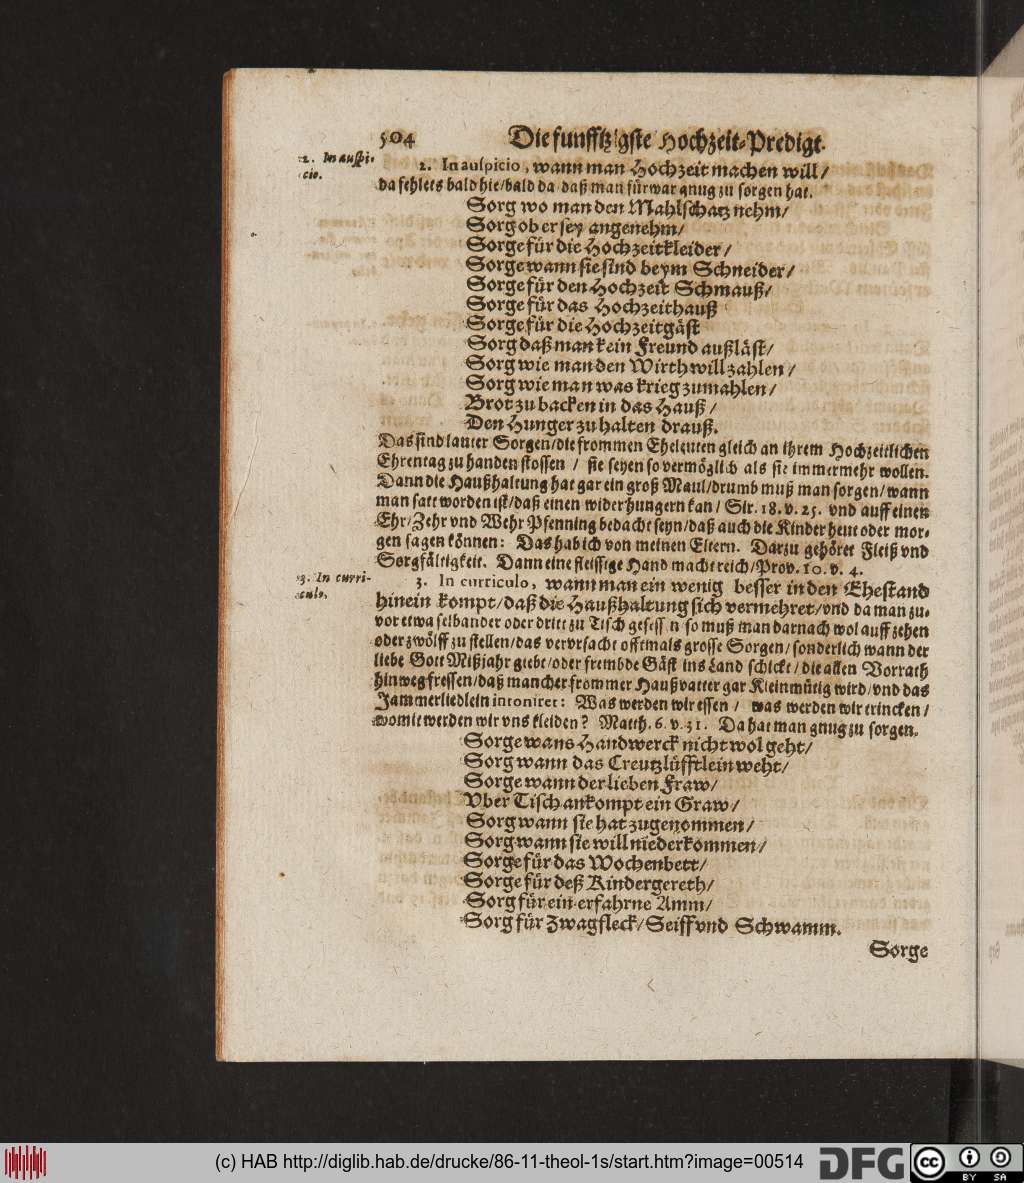 504 Die funfftzigste Hochzeit-Predigt.
2. In auspi-
cio.
2. In auspicio, wann man Hochzeit machen will/
da fehlets bald hie/bald da daß man fürwar gnug zu sorgen hat.
Sorg wo man den Mahlschatz nehm/
Sorg ob er sey angenehm/
Sorge für die Hochzeitkleider/
Sorge wann sie sind beym Schneider/
Sorge für den Hochzeit Schmauß/
Sorge für das Hochzeithauß
Sorge für die Hochzeitgäst
Sorg daß man kein Freund außläst/
Sorg wie man den Wirth will zahlen/
Sorg wie man was krieg zumahlen/
Brot zu backen in das Hauß/
Den Hunger zu halten drauß.
Das sind lauter Sorgen/die frommen Eheleuten gleich an ihrem Hochzeitlichen
Ehrentag zu handen stossen / sie seyen so vermöglich als sie immermehr wollen.
Dann die Haußhaltung hat gar ein groß Maul/drumb muß man sorgen/wann
man satt worden ist/daß einen wider hungern kan/ Sir. 18. v. 25. vnd auff einen
Ehr/Zehr vnd Wehr Pfenning bedacht seyn/daß auch die Kinder heut oder mor-
gen sagen können: Das hab ich von meinen Eltern. Darzu gehöret Fleiß vnd
Sorgfältigkeit. Dann eine fleissige Hand macht reich/Prov. 10. v. 4.
3. In curri-
culo,
3. In curriculo, wann man ein wenig besser in den Ehestand
hinein kompt/daß die Haußhaltung sich vermehret/vnd da man zu-
vor etwa selbander oder dritt zu Tisch gesessen/so muß man darnach wol auff zehen
oder zwölff zu stellen/das verursacht offtmals grosse Sorgen/sonderlich wann der
liebe Gott Mißjahr giebt/oder frembde Gäst ins Land schickt/die allen Vorrath
hinweg fressen/daß mancher frommer Haußvatter gar Kleinmütig wird/vnd das
Jammerliedlein intoniret: Was werden wir essen/ was werden wir trincken/
womit werden wir vns kleiden? Matth. 6. v. 31. Da hat man gnug zu sorgen.
Sorge wans Handwerck nicht wol geht/
Sorg wann das Creutzlüfftlein weht/
Sorge wann der lieben Fraw/
Vber Tisch ankompt ein Graw/
Sorg wann sie hat zugenommen/
Sorg wann sie will niederkommen/
Sorge für das Wochenbett/
Sorge für deß Kindergereth/
Sorg für ein erfahrne Amm/
Sorg für Zwagfleck/Seiff vnd Schwamm.
Sorge
(c) HAB http://diglib.hab.de/drucke/86-11-theol-1s/start.htm?image=00514
DFG
cc
BY SA